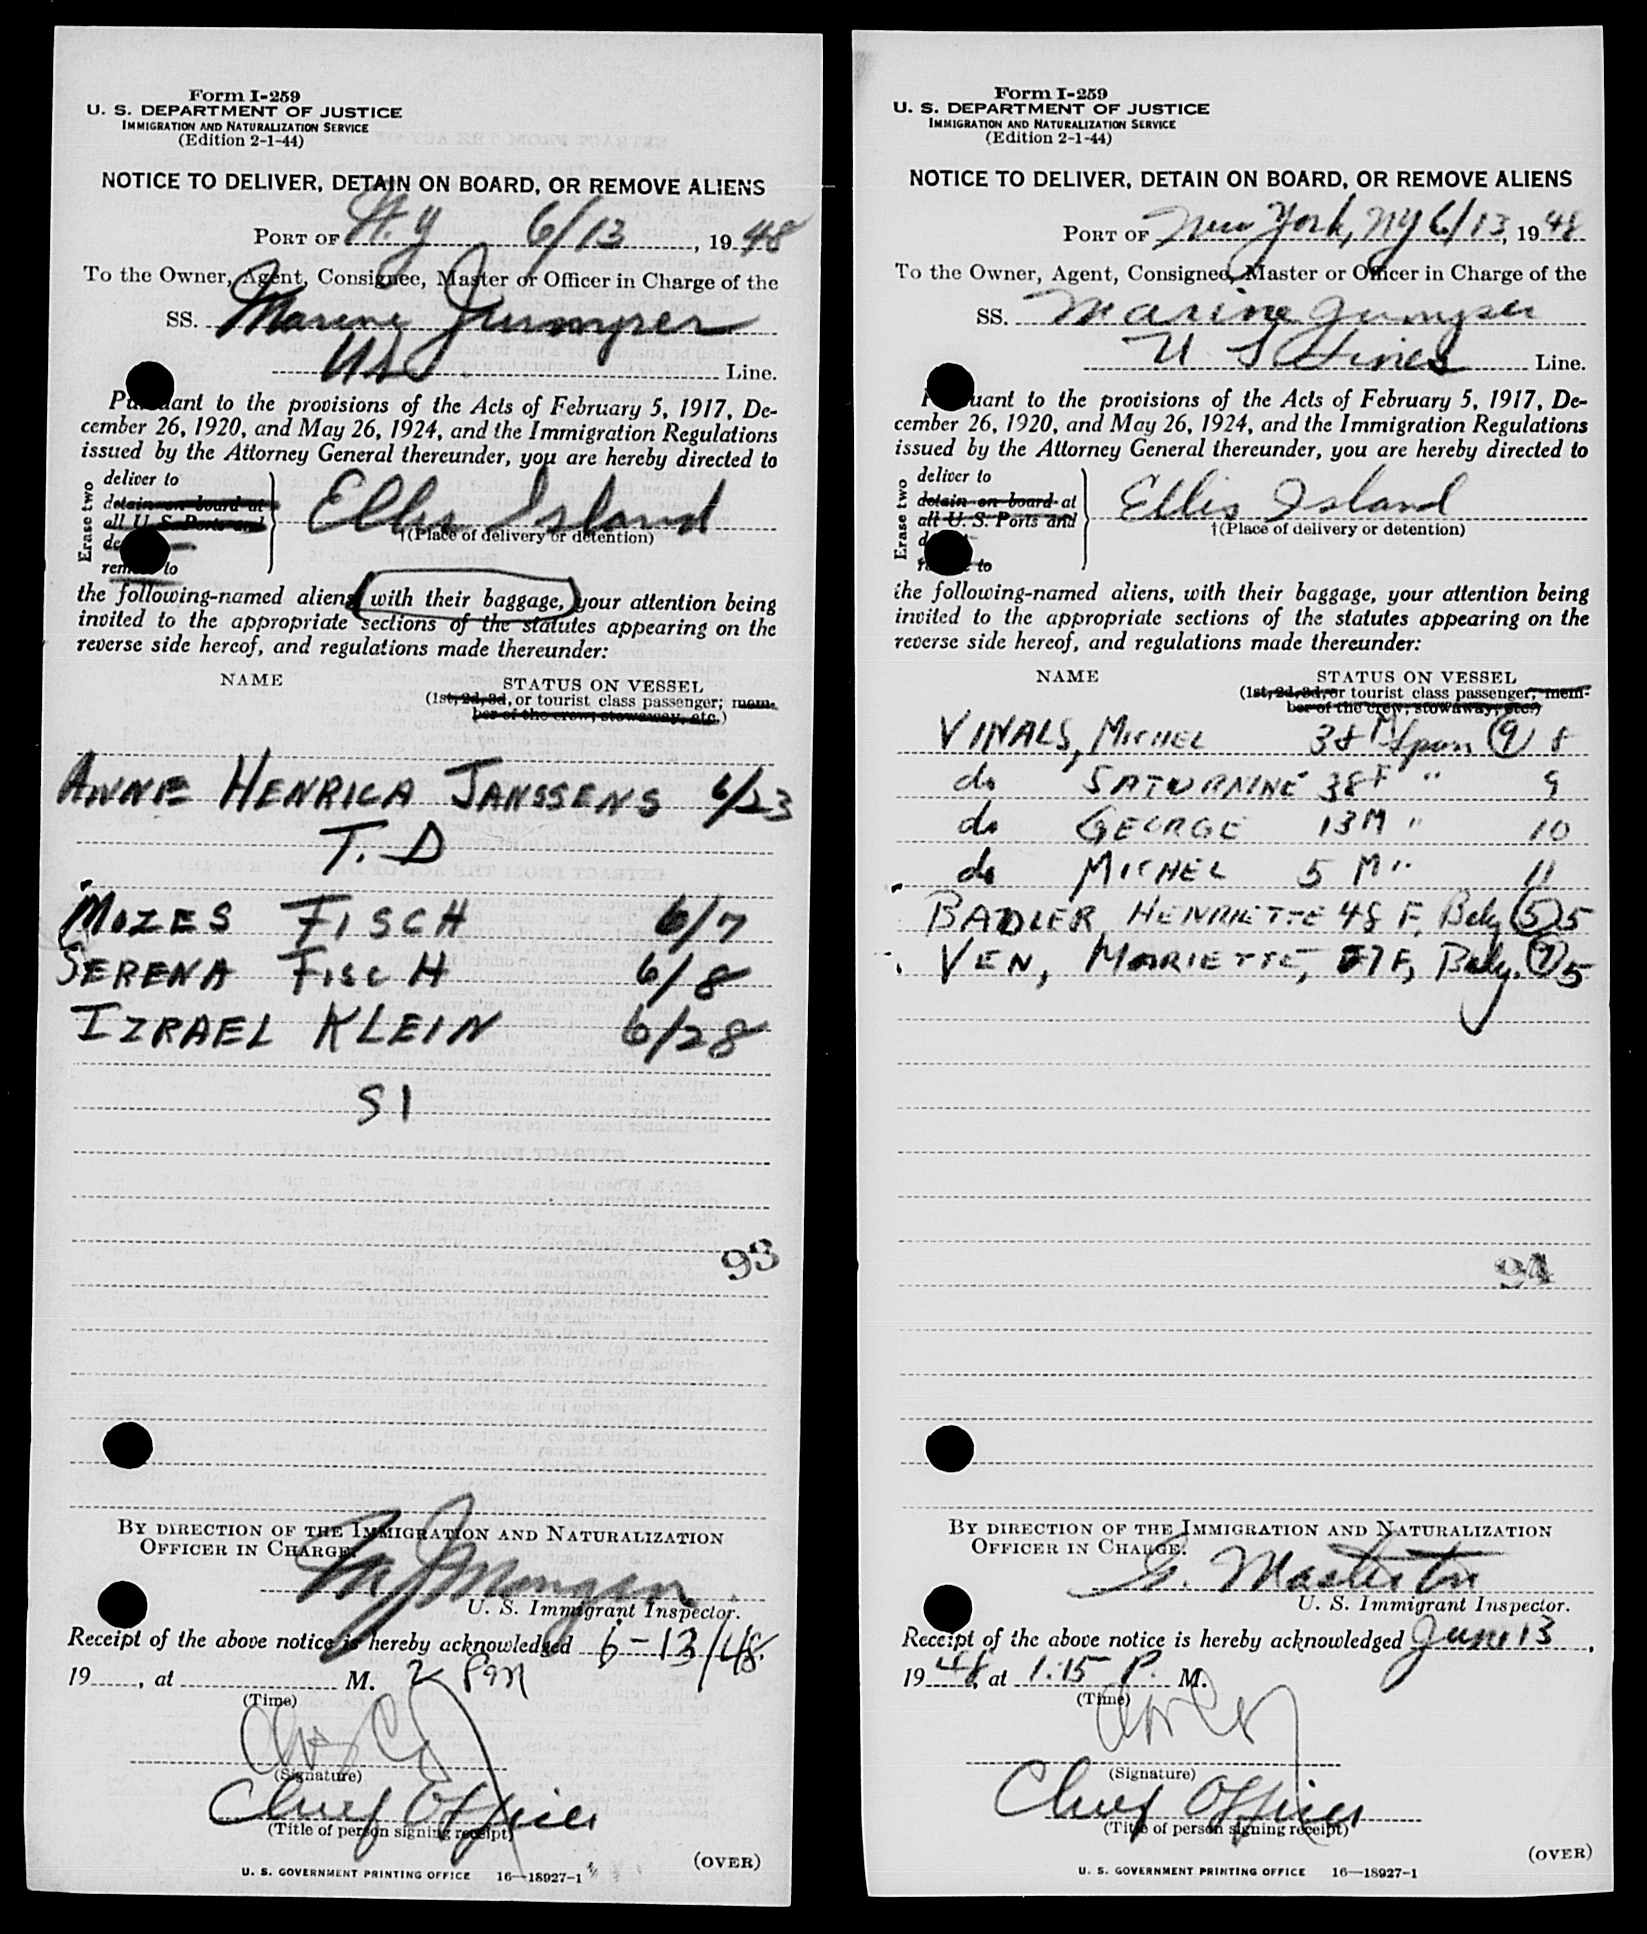 Form I-259
U. S. DEPARTMENT OF JUSTICE
IMMIGRATION AND NATURALIZATION SERVICE
(Edition 2-1-44)
NOTICE TO DELIVER, DETAIN ON BOARD, OR REMOVE ALIENS
PORT OF N.Y 6/13, 1948
To the Owner, Agent, Consignee, Master or Officer in Charge of the
SS. Marine Jumper
US Line.
Pursuant to the provisions of the Acts of February 5, 1917, De-
cember 26, 1920, and May 26, 1924, and the Immigration Regulations
issued by the Attorney General thereunder, you are hereby directed to
Erase two
deliver to
detain on board at
all U. S. Ports and
de
remove to
Ellis Island
†(Place of delivery or detention)
the following-named aliens with their baggage, your attention being
invited to the appropriate sections of the statutes appearing on the
reverse side hereof, and regulations made thereunder:
NAME STATUS ON VESSEL
(1st, 2d, 3d, or tourist class passenger; mem-
ber of the crew; stowaway, etc.)
ANNE HENRICA JANSSENS 6/23
T. D
MOZES FISCH 6/7
SERENA FISCH 6/8
IZRAEL KLEIN 6/28
S I
93
BY DIRECTION OF THE IMMIGRATION AND NATURALIZATION
OFFICER IN CHARGE:
U. S. Immigrant Inspector.
Receipt of the above notice is hereby acknowledged 6-13/48.
19, at M. 2 PM
(Time)
(Signature)
Chief Officer
(Title of person signing receipt)
(OVER)
U. S. GOVERNMENT PRINTING OFFICE 16—18927-1
Form I-259
U. S. DEPARTMENT OF JUSTICE
IMMIGRATION AND NATURALIZATION SERVICE
(Edition 2-1-44)
NOTICE TO DELIVER, DETAIN ON BOARD, OR REMOVE ALIENS
PORT OF New York, NY 6/13, 1948
To the Owner, Agent, Consignee, Master or Officer in Charge of the
SS. Marine Jumper
U S Lines Line.
Pursuant to the provisions of the Acts of February 5, 1917, De-
cember 26, 1920, and May 26, 1924, and the Immigration Regulations
issued by the Attorney General thereunder, you are hereby directed to
Erase two
deliver to
detain on board at
all U. S. Ports and
d
to
Ellis Island
†(Place of delivery or detention)
the following-named aliens, with their baggage, your attention being
invited to the appropriate sections of the statutes appearing on the
reverse side hereof, and regulations made thereunder:
NAME STATUS ON VESSEL
(1st, 2d, 3d, or tourist class passenger; mem-
ber of the crew; stowaway, etc.)
VINALS, MICHEL 38 M Span 9 8
do SATURNINE 38 F " 9
do GEORGE 13 M " 10
do MICHEL 5 M " 11
BADLER HENRIETTE 48 F, Belg 5 5
VEN, MARIETTE, F, Belg. 5
94
BY DIRECTION OF THE IMMIGRATION AND NATURALIZATION
OFFICER IN CHARGE:
G. Masterton
U. S. Immigrant Inspector.
Receipt of the above notice is hereby acknowledged June 13,
1948, at 1:15 P. M.
(Time)
(Signature)
Chief Officer
(Title of person signing receipt)
(OVER)
U. S. GOVERNMENT PRINTING OFFICE 16—18927-1